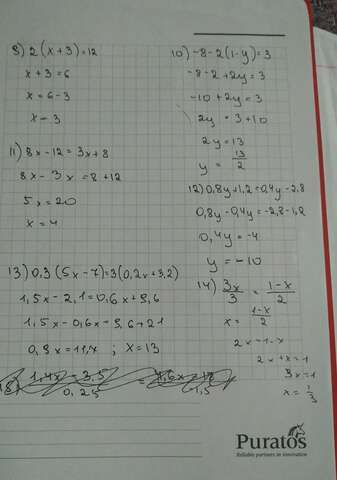 9) 2(x+3)=12
x+3=6
x=6-3
x=3
10) -8-2(1-y)=3
-8-2+2y=3
-10+2y=3
2y=3+10
2y=13
y=13/2
11) 8x-12=3x+8
8x-3x=8+12
5x=20
x=4
12) 0,8y+1,2=0,4y-2,8
0,8y-0,4y=-2,8-1,2
0,4y=-4
y=-10
13) 0,3(5x-7)=3(0,2x+3,2)
1,5x-2,1=0,6x+9,6
1,5x-0,6x=9,6+2,1
0,9x=11,7 ; x=13
14) 3x/3=1-x/2
x=1-x/2
2x=1-x
2x+x=1
3x=1
x=1/3
Puratos
Reliable partners in innovation